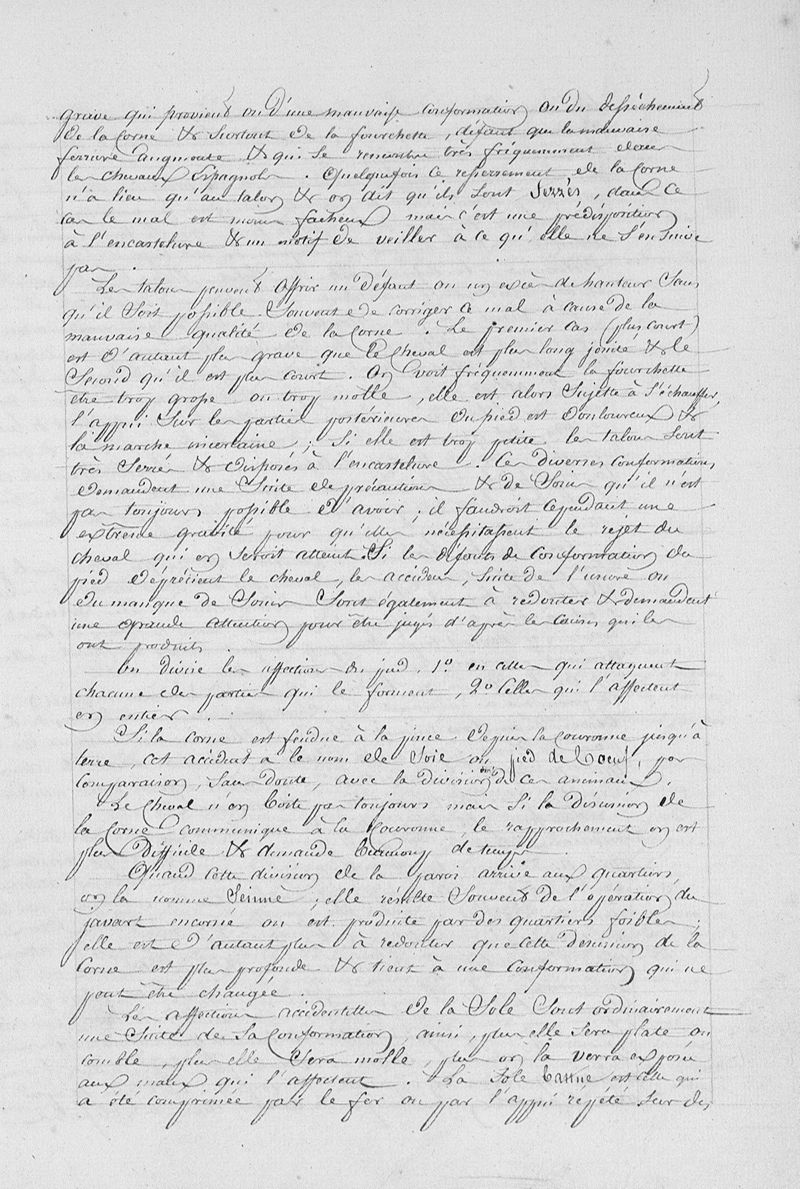 grave qui provient ou d'une mauvaise conformation ou du desséchement
de la Corne & surtout de la fourchette, défaut que la mauvaise
ferrure augmente & qui se rencontre très fréquemment dans
les chevaux Espagnols. Quelquefois ce resserrement de la Corne
n'a lieu qu'au talon & on dit qu'ils sont Serrés, dans ce
cas le mal est moins fâcheux mais c'est une prédisposition
à l'encastelure & un motif de veiller à ce qu'elle ne s'en suive
pas.
Les talons peuvent offrir un défaut ou un excès de hauteur sans
qu'il soit possible souvent de corriger ce mal à cause de la
mauvaise qualité de la Corne. Le premier cas (plus court)
est d'autant plus grave que le Cheval est plus long jointé & le
Second qu'il est plus court. On voit fréquemment la fourchette
être trop grosse ou trop molle, elle est alors Sujette à s'échauffer,
l'appui sur les parties postérieures du pied est douloureux &
la marche incertaine; Si elle est trop petite les talons sont
très Serrés & disposés à l'encastelure. Ces diverses conformations
demandent une Suite de précautions & de Soins qu'il n'est
pas toujours possible d'avoir; il faudroit cependant une
extrême gravité pour qu'elles nécéssitassent le rejet du
cheval qui en seroit atteint. Si les défauts de Conformation du
pied déprécient le cheval, les accidens, suite de l'usure ou
du manque de Soins sont également à redouter & demandent
une grande attention pour être jugés d'après les causes qui les
ont produits.
On divise les affections du pied. 1.º en celles qui attaquent
chacune des parties qui le forment, 2.º Celles qui l'affectent
en entier.
Si la corne est fendue à la pince depuis la couronne jusqu'à
terre, cet accident a le nom de Soie ou pied de boeuf, par
comparaison, sans doute, avec la division de ces animaux.
Le Cheval n'en boite pas toujours mais Si la désunion de
la Corne communique à la Couronne, le rapprochement en est
plus difficile & demande beaucoup de temps.
Quand cette division de la paroi arrive aux quartiers,
on la nomme Seime; elle résulte souvent de l'opération du
javart encorné ou est produite par des quartiers foibles;
elle est d'autant plus à redouter que cette désunion de la
Corne est plus profonde & tient à une conformation qui ne
peut être changée.
Les affections accidentelles de la Sole sont ordinairement
une Suite de sa Conformation, ainsi, plus elle sera plate ou
comble, plus elle sera molle, plus on la verra exposée
aux maux qui l'affectent. La Sole battue est celle qui
a été comprimée par le fer ou par l'appui repété sur des